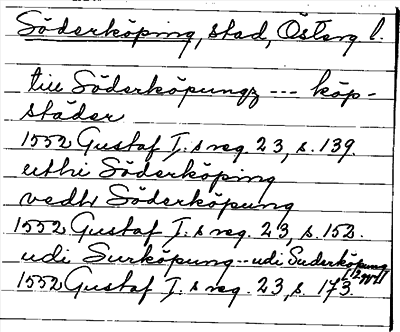 Söderköping, stad, Österg l.
till Söderköpungz --- köp-
städer
1552 Gustaf I:s reg. 23, s. 139.
uthi Söderköping
vedh Söderköpung
1552 Gustaf I:s reg. 23, s. 152.
udi Surköpung -- udi Suderköpung
(2 ggr)
1552 Gustaf I:s reg. 23, s. 173.